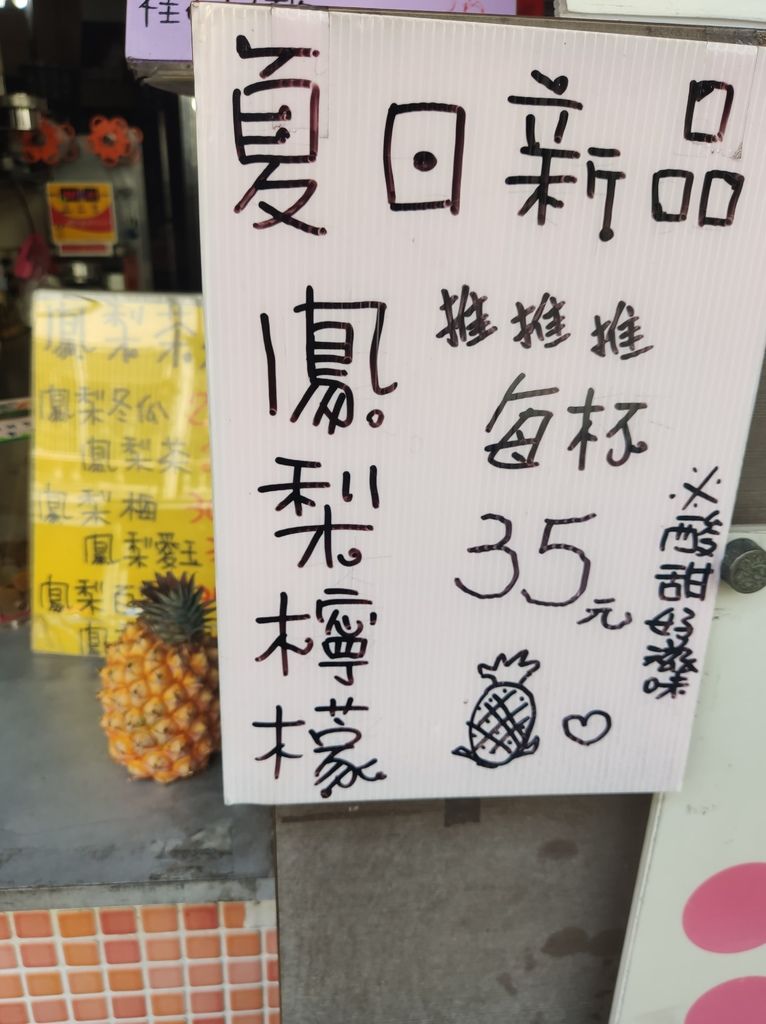 夏日新品
鳳梨檸檬
推推推
每杯
35元
※酸甜好滋味
鳳梨茶
鳳梨冬瓜
鳳梨茶
鳳梨梅
鳳梨愛玉
鳳梨百
鳳